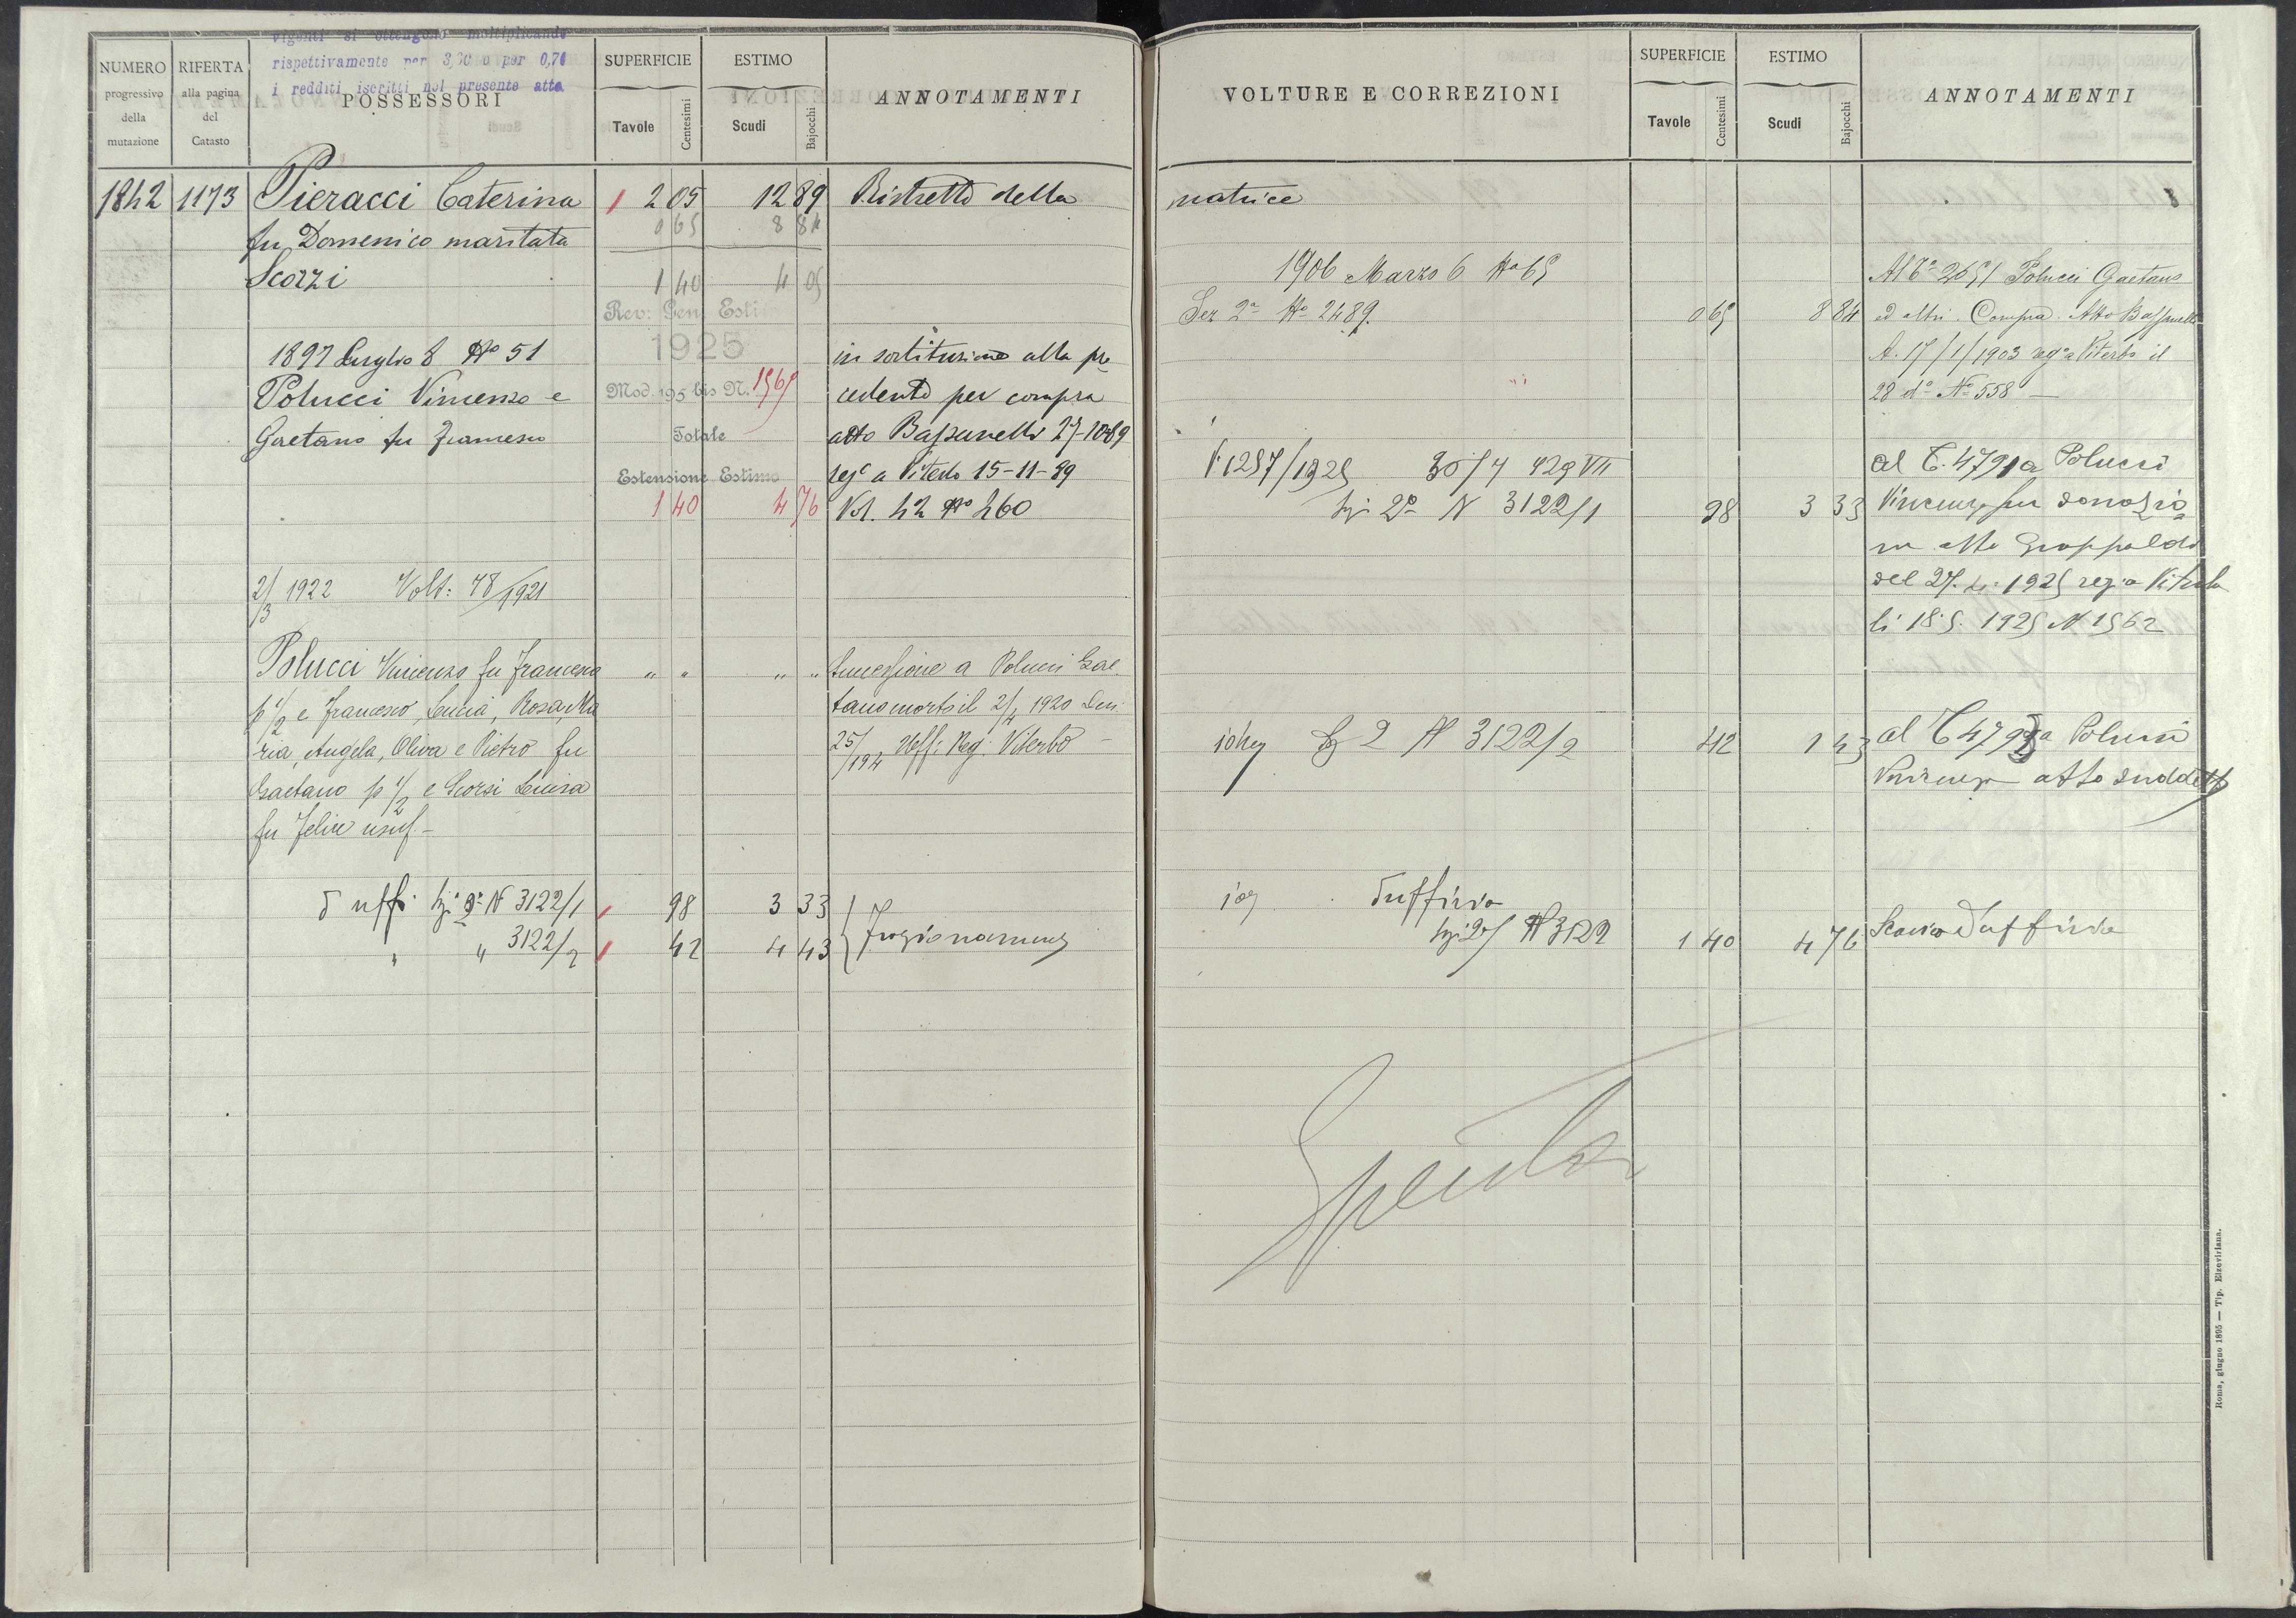 vigenti si ottengono moltiplicando
rispettivamente per 3,60 o per 0,70
i redditi iscritti nel presente atto.
NUMERO progressivo della mutazione
RIFERTA alla pagina del Catasto
POSSESSORI
SUPERFICIE Tavole Centesimi
ESTIMO Scudi Bajocchi
ANNOTAMENTI
1842 1173 Pieracci Caterina 1 2 05 12 89 Ristretto della
fu Domenico maritata 0 65 8 84
Scorzi 1 40 4 05
Rev: Gen. Estimi
1897 Luglio 8 No 51 1925 in sostituzione alla pre
Polucci Vincenzo e Mod. 195 bis N. 1569 cedente per compra
Gaetano fu Francesco Totale atto Bassanelli 27-10-89
Estensione Estimo rego a Viterbo 15-11-89
1 40 4 76 Vol. 42 No 460
2/3 1922 Volt: 78/1921
Polucci Vincenzo fu Francesco " " " " Successione a Polucci Gae-
p 1/2 e Francesco, Lucia, Rosa, Ma tano morto il 2/4 1920 Den.
ria, Angela, Oliva e Pietro fu 25/194 Uff: Reg: Viterbo -
Gaetano p 1/2 e Scorsi Luisa
fu Felice usuf. -
d'uff. Sez. 2a N 3122/1 98 3 33
" " 3122/2 42 4 43 Frazionamento
VOLTURE E CORREZIONI
SUPERFICIE Tavole Centesimi
ESTIMO Scudi Bajocchi
ANNOTAMENTI
matrice
1906 Marzo 6 No 65 Al Co 2651 Polucci Gaetano
Sez 2a No 2489. 0 65 8 84 ed altri. Compra. Atto Bassanelli
A. 17/1/1903 rego a Viterbo il
28 do No 558 -
V. 1257/1925 30/4 929 VII al C. 4791 a Polucci
Sez 2a N 3122/1 98 3 33 Vincenzo per donazio
ne atto
del 27. 4. 1925 reg. a Viterbo
li 18. 5. 1925 N 1562
Sez 2 N 3122/2 42 1 43 al C 4792 a Polucci
Vincenzo atto suddetto
d'ufficio
Sez 2a N 3122 1 40 4 76 Scarico d'ufficio
Spenta
Roma, giugno 1895 — Tip. Elzeviriana.